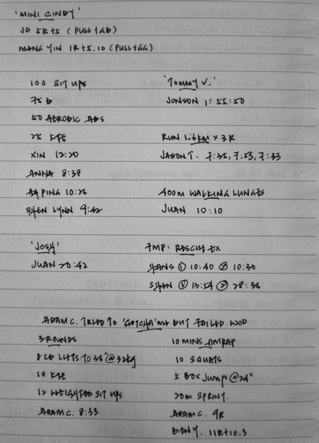 'MINI CINDY'
JO 5R+5 (PULL+GB)
MENG YIN 1R+5.10 (PULL+GG)
100 SIT UPS
75 B
50 AEROBIC ABS
25 KTE
XIN 12:20
ANNA 8:38
AH PING 10:26
SHEN LYNN 9:42
'TOMMY V.'
JONSON 1:55:50
RUN 1.6KM x 3R
JASON T. 7:35, 7:53, 7:33
400M WALKING LUNGES
JUAN 10:10
'JOSH'
JUAN 20:42
TMP: RESCUE EX
HANS ① 10:40 ② 10:30
SHEN ① 13:54 ② 28:36
ADAM C. TRIED TO 'GOTCHA' ME BUT FAILED WOD
3 ROUNDS
@32KG
10 KTE
12 WEIGHTED SIT UPS
ADAM C. 8:33
10 MINS AMRAP
10 SQUATS
5 BOX JUMPS @24"
20M SPRINT.
ADAM C. 9R
11R+10.3